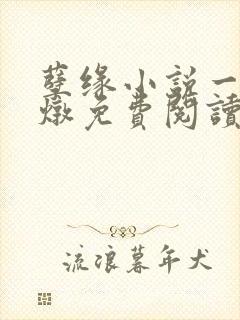 孽缘小说一
燉免費閱讀
流浪暮年犬